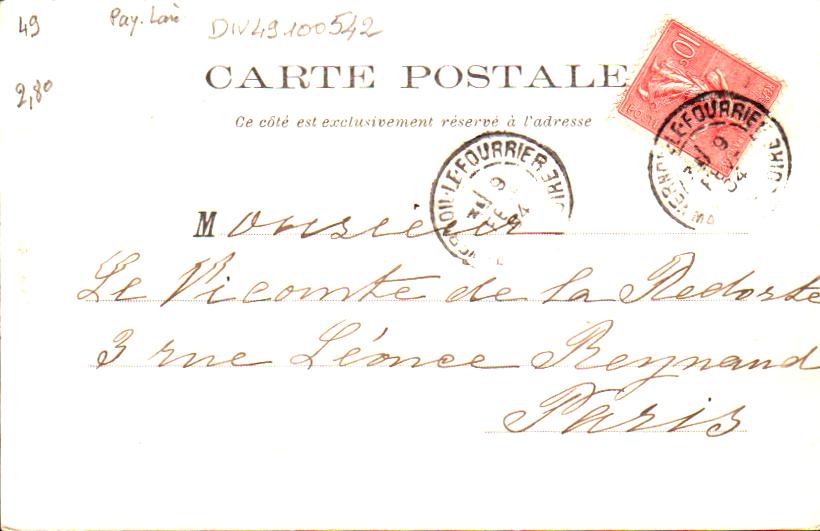 49
Pay. Loire
DIV49100542
2,80
CARTE POSTALE
Ce côté est exclusivement réservé à l'adresse
10c
LE-FOURRIER
9
FE
04
LE-FOURRIER
9
04
Monsieur
Le Vicomte de la Redorte
3 rue Léonce Reynaud
Paris